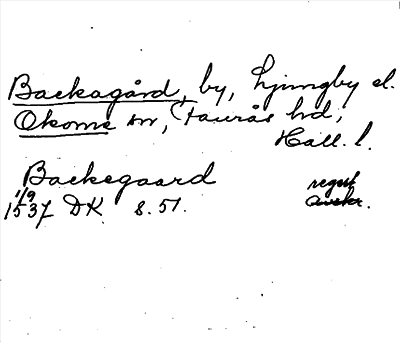 Backagård, by, Ljungby el.
Okome sn, Faurås hd,
Hall. l.
Backegaard
1/9
1537 DK s. 51.
regest
avskr.